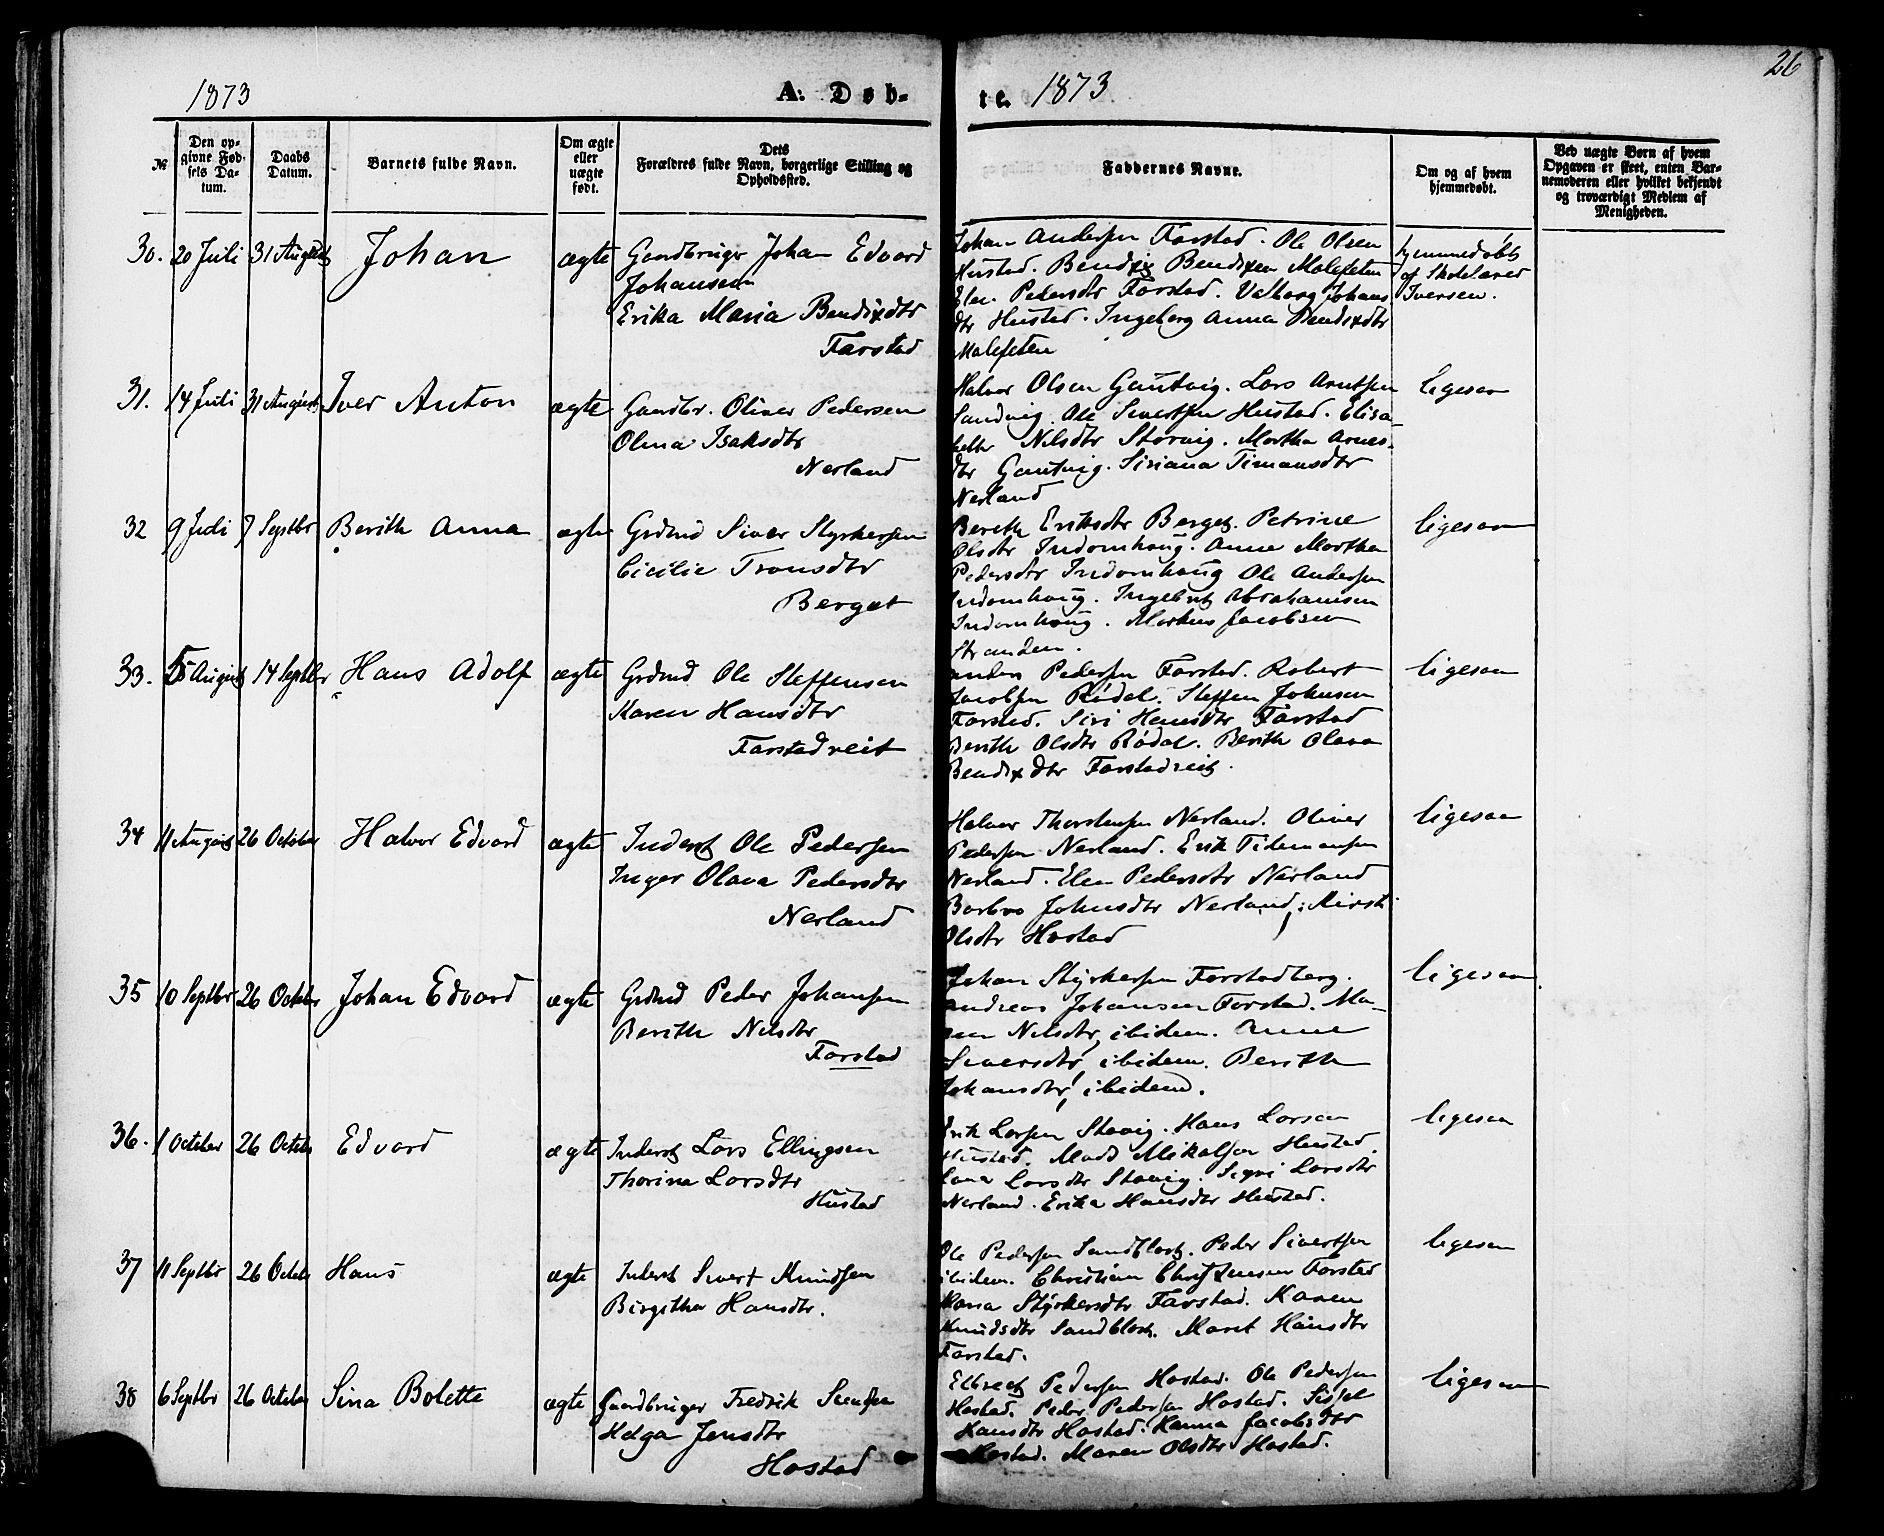 26
1873
A. Døb-
te. 1873
№
Den op-
givne Fød-
sels Da-
tum.
Daabs
Datum.
Barnets fulde Navn.
Om ægte
eller
uægte
født.
Dets
Forældres fulde Navn, borgerlige Stilling og
Opholdssted.
Faddernes Navne.
Om og af hvem
hjemmedøbt.
Ved uægte Børn af hvem
Opgaven er skeet, enten Bar-
nemoderen eller hvilket bekjendt
og troværdigt Medlem af
Menigheden.
30. 20 Juli 31 August Johan ægte Gaardbruger Johan Edvard
Johansen
Erika Maria Bendixdtr
Farstad
Johan Andersen Farstad. Ole Olsen
Hustad. Bendix Bendixen Malefeten
Elen Pedersdtr Farstad. Valborg Johans
dtr Hustad. Ingeborg Anna Bendixdtr
Malefeten
hjemmedøbt
af Skolelærer
Iversen.
31. 14 Juli 31 August Iver Anton ægte Gaardbr. Oliver Pedersen
Olina Isaksdtr
Nerland
Halvor Olsen Gautvig. Lars Arntsen
Sandvig. Ole Sivertsen Hustad. Elisa-
beth Nilsdtr Storvig. Martha Arnes-
dtr Gautvig. Siriana Timansdtr
Nerland
ligesaa
32 9 Juli 7 Septbr Berith Anna ægte Grdmd Siver Styrkersen
Cicilie Tronsdtr
Berget
Berith Eriksdtr Berget. Petrine
Olsdtr Indornhoug. Anne Martha
Pedersdtr Indornhoug Ole Andersen
Indornhoug. Ingebrigt Abrahamsen
Indornhoug. Markus Jacobsen
Stranden.
ligesaa
33. 5 August 14 Septbr Hans Adolf ægte Grdmd Ole Steffensen
Karen Hansdtr
Farstadreit
Anders Pedersen Farstad. Robert
Jacobsen Rødal. Steffen Johnsen
Farstad. Siri Hansdtr Farstad
Berith Olsdtr Rødal. Berith Olava
Bendixdtr Farstadreit.
ligesaa
34 11 August 26 October Halvor Edvard ægte Inderst Ole Pedersen
Inger Olava Pedersdtr
Nerland
Halvor Thorstensen Nerland. Oliver
Pedersen Nerland. Erik Tidemansen
Nerland. Elen Pedersdtr Nerland
Barbro Johnsdtr Nerland; Kirsti
Olsdtr Hostad
ligesaa
35 10 Septbr 26 Octobr Johan Edvard ægte Grdmd Peder Johansen
Berith Nilsdtr
Farstad
Johan Styrkersen Farstadberg.
Andreas Johansen Farstad. Ma-
ren Nilsdtr, ibidem. Anne
Siversdtr, ibidem. Berith
Johansdtr, ibidem.
ligesaa
36. 1 October 26 Octobr Edvard ægte Inderst Lars Ellingsen
Thorina Larsdtr
Hustad
Erik Larsen Stavig. Hans Larsen
Hustad. Mads Mikalsen Hustad.
Lava Larsdtr Stavig. Sigri Larsdtr
Nerland. Erika Hansdtr Hustad.
ligesaa
37 11 Septbr 26 Octobr Hans ægte Inderst Sivert Knudsen
Birgitha Hansdtr.
Ole Pedersen Sandblost. Peder Sivertsen
ibidem. Christian Christensen Farstad
Maria Styrkersdtr Farstad. Karen
Knudsdtr Sandblost. Maret Hansdtr
Farstad.
ligesaa
38 6 Septbr 26 October Sina Bolette ægte Gaardbruger Fredrik Svendsen
Helga Jensdtr
Hostad
Elbregt Pedersen Hostad. Ole Pedersen
Hostad. Peder Pedersen Hostad. Sissel
Hansdtr Hostad. Hanna Jacobsdtr
Hostad. Maren Olsdtr Hostad.
ligesaa